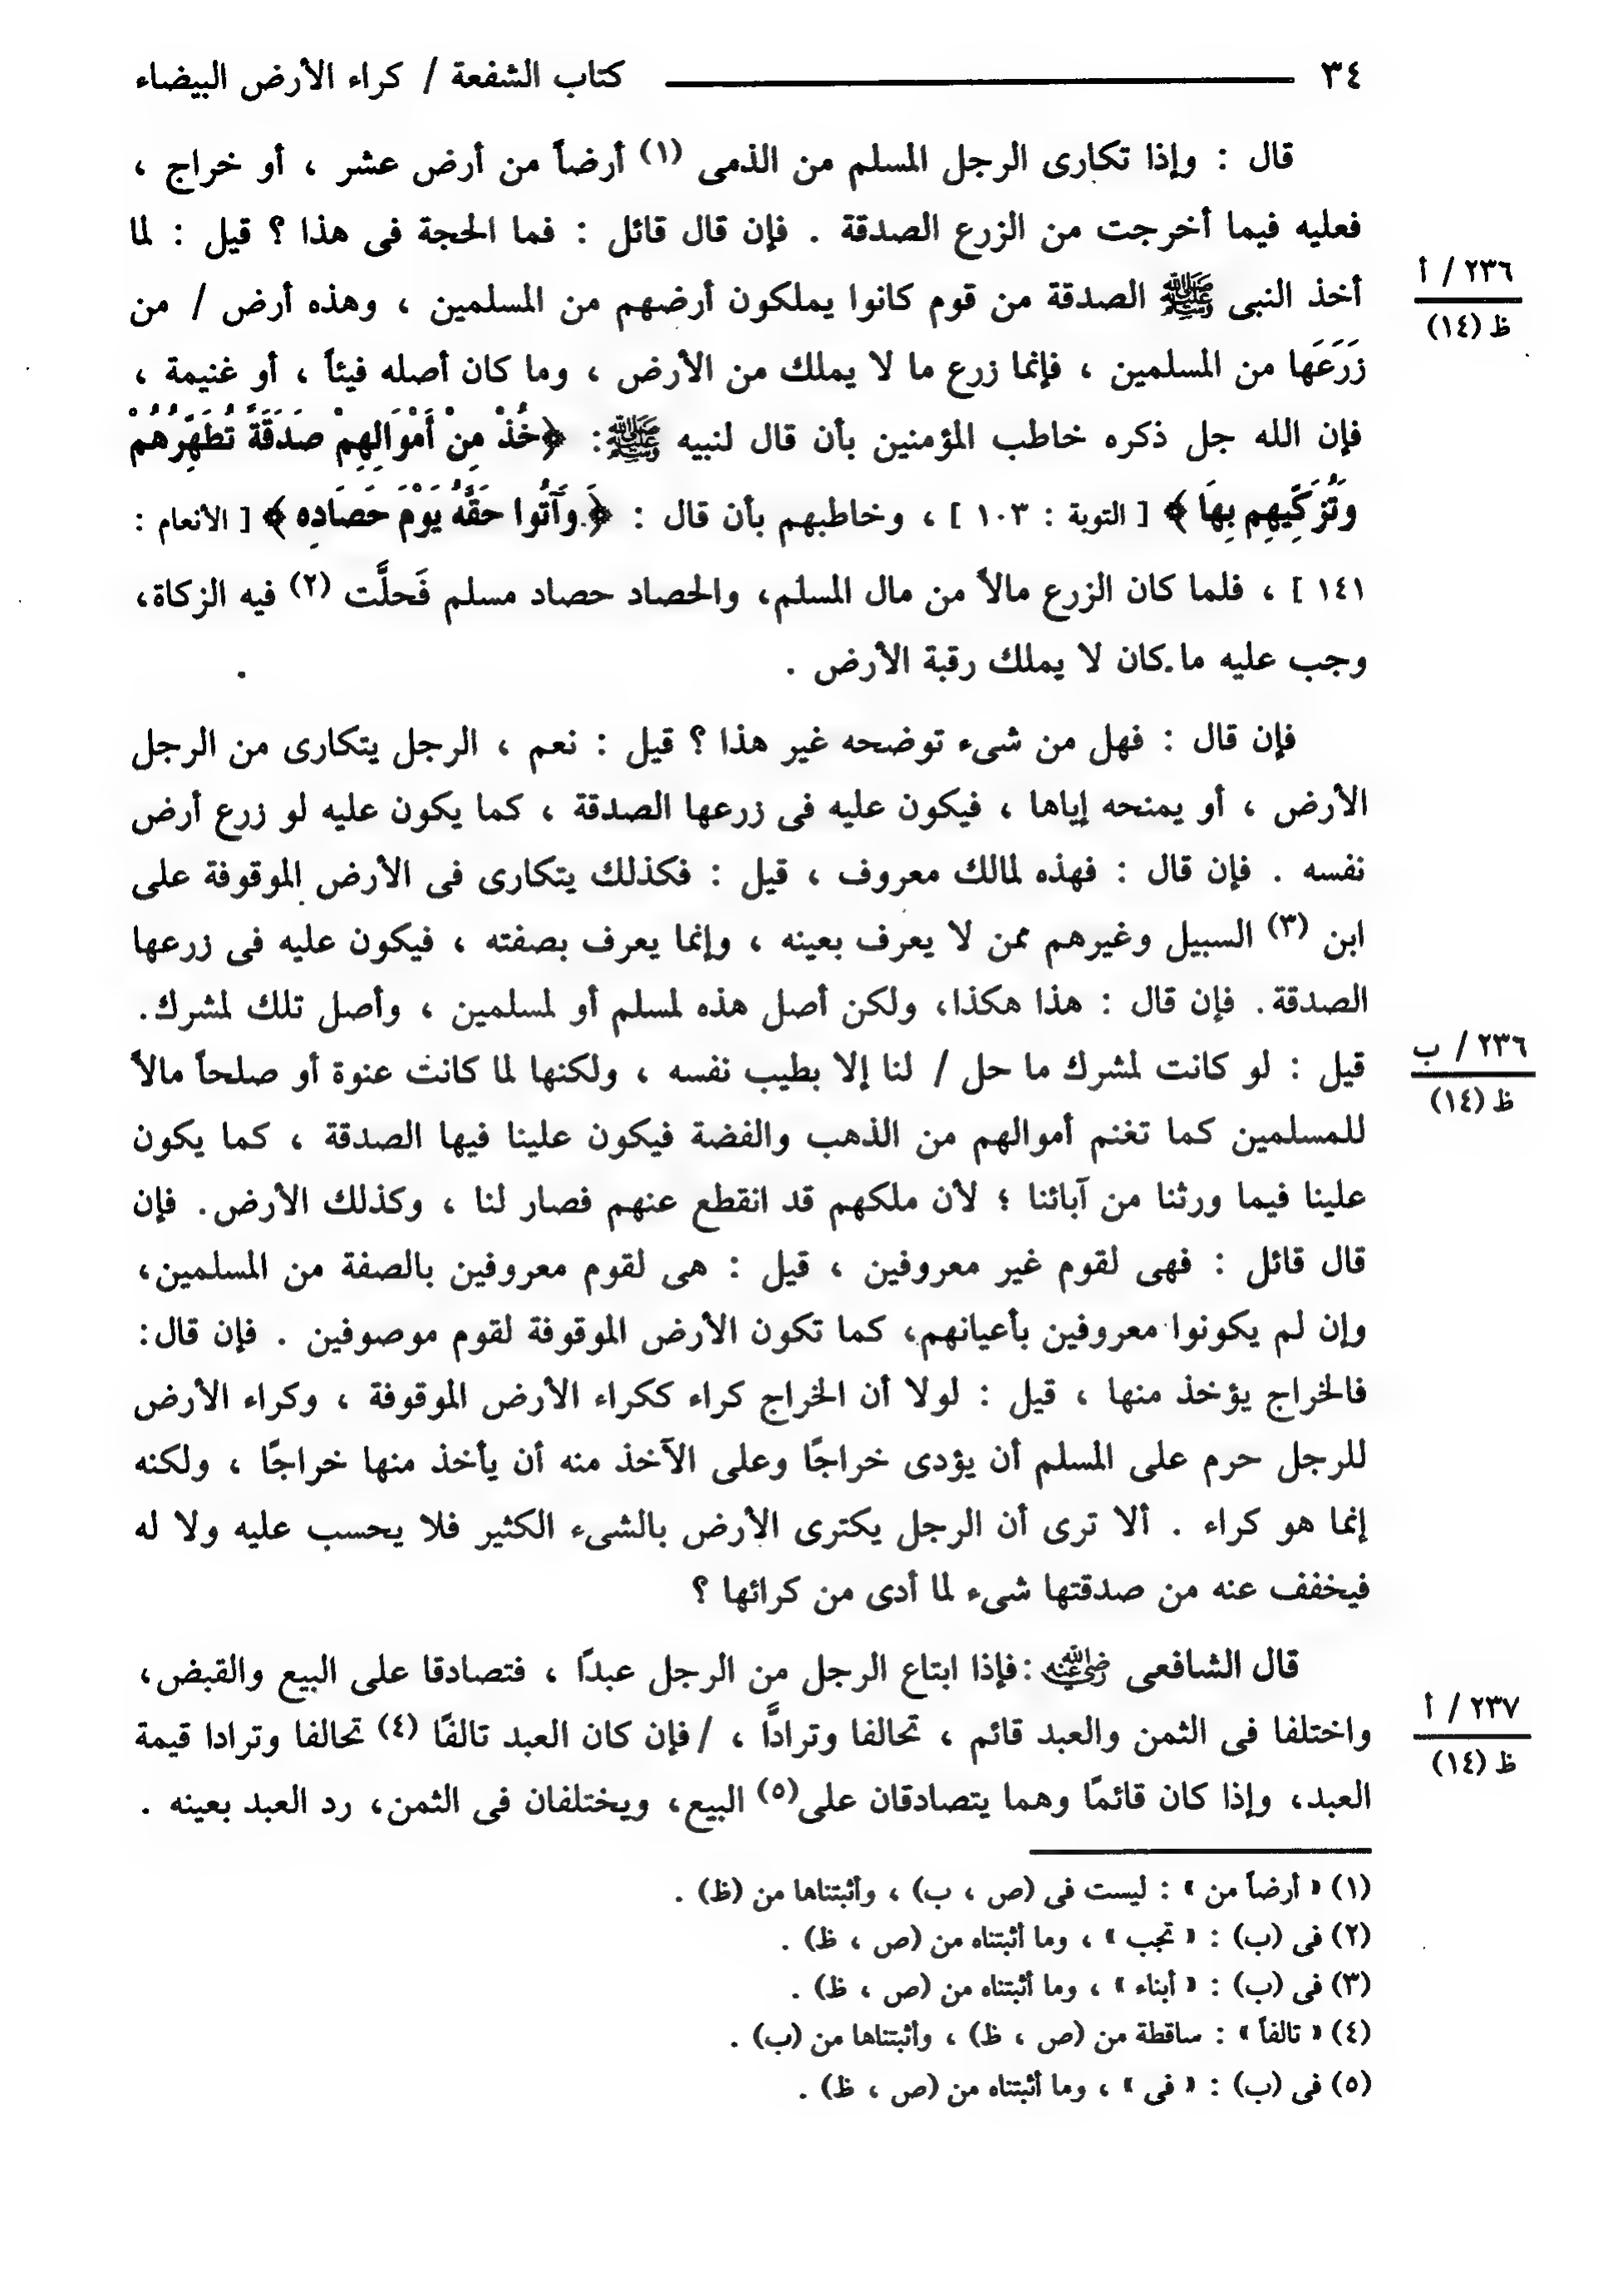 ٣٤ كتاب الشفعة / كراء الأرض البيضاء
قال : وإذا تكارى الرجل المسلم من الذمى (١) أرضاً من أرض عشر ، أو خراج ،
فعليه فيما أخرجت من الزرع الصدقة . فإن قال قائل : فما الحجة فى هذا ؟ قيل : لما
أخذ النبى ﷺ الصدقة من قوم كانوا يملكون أرضهم من المسلمين ، وهذه أرض / من
٢٣٦ / أ
ظ (١٤)
زَرَعَها من المسلمين ، فإنما زرع ما لا يملك من الأرض ، وما كان أصله فيئاً ، أو غنيمة ،
فإن الله جل ذكره خاطب المؤمنين بأن قال لنبيه ﷺ: ﴿خُذْ مِنْ أَمْوَالِهِمْ صَدَقَةً تُطَهِّرُهُمْ
وَتُزَكِّيهِم بِهَا ﴾ [ التوبة : ١٠٣ ] ، وخاطبهم بأن قال : ﴿ وَآتُوا حَقَّهُ يَوْمَ حَصَادِهِ ﴾ [ الأنعام :
١٤١ ] ، فلما كان الزرع مالاً من مال المسلم، والحصاد حصاد مسلم فَحلَّت (٢) فيه الزكاة،
وجب عليه ما كان لا يملك رقبة الأرض .
فإن قال : فهل من شىء توضحه غير هذا ؟ قيل : نعم ، الرجل يتكارى من الرجل
الأرض ، أو يمنحه إياها ، فيكون عليه فى زرعها الصدقة ، كما يكون عليه لو زرع أرض
نفسه . فإن قال : فهذه لمالك معروف ، قيل : فكذلك يتكارى فى الأرض الموقوفة على
ابن (٣) السبيل وغيرهم ممن لا يعرف بعينه ، وإنما يعرف بصفته ، فيكون عليه فى زرعها
الصدقة. فإن قال : هذا هكذا، ولكن أصل هذه لمسلم أو لمسلمين ، وأصل تلك لمشرك.
قيل : لو كانت لمشرك ما حل / لنا إلا بطيب نفسه ، ولكنها لما كانت عنوة أو صلحاً مالاً
٢٣٦ / ب
ظ (١٤)
للمسلمين كما تغنم أموالهم من الذهب والفضة فيكون علينا فيها الصدقة ، كما يكون
علينا فيما ورثنا من آبائنا ؛ لأن ملكهم قد انقطع عنهم فصار لنا ، وكذلك الأرض. فإن
قال قائل : فهى لقوم غير معروفين ، قيل : هى لقوم معروفين بالصفة من المسلمين،
وإن لم يكونوا معروفين بأعيانهم، كما تكون الأرض الموقوفة لقوم موصوفين . فإن قال:
فالخراج يؤخذ منها ، قيل : لولا أن الخراج كراء ككراء الأرض الموقوفة ، وكراء الأرض
للرجل حرم على المسلم أن يؤدى خراجًا وعلى الآخذ منه أن يأخذ منها خراجًا ، ولكنه
إنما هو كراء . ألا ترى أن الرجل يكترى الأرض بالشىء الكثير فلا يحسب عليه ولا له
فيخفف عنه من صدقتها شىء لما أدى من كرائها ؟
قال الشافعى رضي الله عنه :فإذا ابتاع الرجل من الرجل عبدًا ، فتصادقا على البيع والقبض،
واختلفا فى الثمن والعبد قائم ، تحالفا وترادًّا ، /فإن كان العبد تالفًا (٤) تحالفا وترادا قيمة
٢٣٧ / أ
ظ (١٤)
العبد، وإذا كان قائمًا وهما يتصادقان على(٥) البيع، ويختلفان فى الثمن، رد العبد بعينه .
(١) « أرضاً من » : ليست فى (ص ، ب) ، وأثبتناها من (ظ) .
(٢) فى (ب) : « تجب » ، وما أثبتناه من (ص ، ظ) .
(٣) فى (ب) : « أبناء » ، وما أثبتناه من (ص ، ظ) .
(٤) « تالفاً » : ساقطة من (ص ، ظ) ، وأثبتناها من (ب) .
(٥) فى (ب) : « فى » ، وما أثبتناه من (ص ، ظ) .